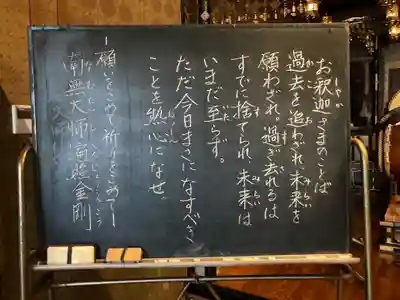 お釈迦さまのことば
過去を追わざれ未来を
願わざれ。過ぎ去れるは
すでに捨てられ、未来は
いまだ至らず。
ただ今日まさになすべき
ことを熱心になせ。
ー願いをこめて祈りをこめてー
南無大師遍照金剛